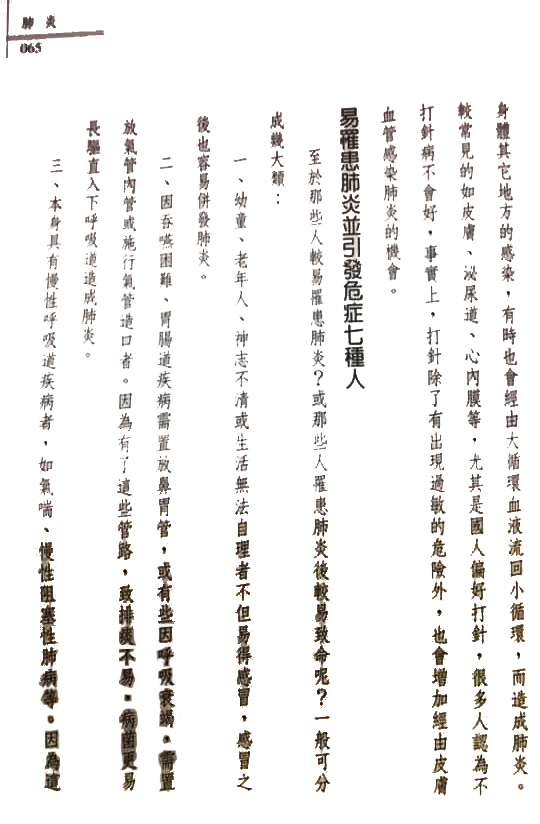 肺炎
065
身體其它地方的感染，有時也會經由大循環血液流回小循環，而造成肺炎。
較常見的如皮膚、泌尿道、心內膜等，尤其是國人偏好打針，很多人認為不
打針病不會好，事實上，打針除了有出現過敏的危險外，也會增加經由皮膚
血管感染肺炎的機會。
易罹患肺炎並引發危症七種人
至於那些人較易罹患肺炎？或那些人罹患肺炎後較易致命呢？一般可分
成幾大類：
一、幼童、老年人、神志不清或生活無法自理者不但易得感冒，感冒之
後也容易併發肺炎。
二、因吞嚥困難、胃腸道疾病需置放鼻胃管，或有些因呼吸衰竭，需置
放氣管內管或施行氣管造口者。因為有了這些管路，致排痰不易，病菌更易
長驅直入下呼吸道造成肺炎。
三、本身具有慢性呼吸道疾病者，如氣喘、慢性阻塞性肺病等。因為這